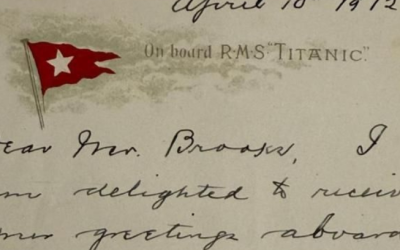 April 10 1912
On board R·M·S "TITANIC".
ear Mr. Brooks, I
m delighted to receiv
our greetings aboard